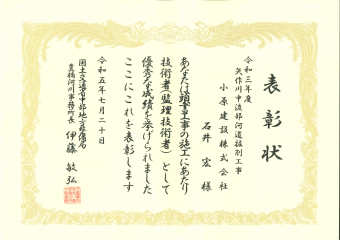 表彰状
令和三年度
矢作川中流部河道掘削工事
小原建設株式会社
石井 宏 様
あなたは頭書工事の施工にあたり
技術者(監理技術者)として
優秀な成績を挙げられました
ここにこれを表彰します
令和五年七月二十日
国土交通省中部地方整備局
豊橋河川事務所長 伊藤 敏弘